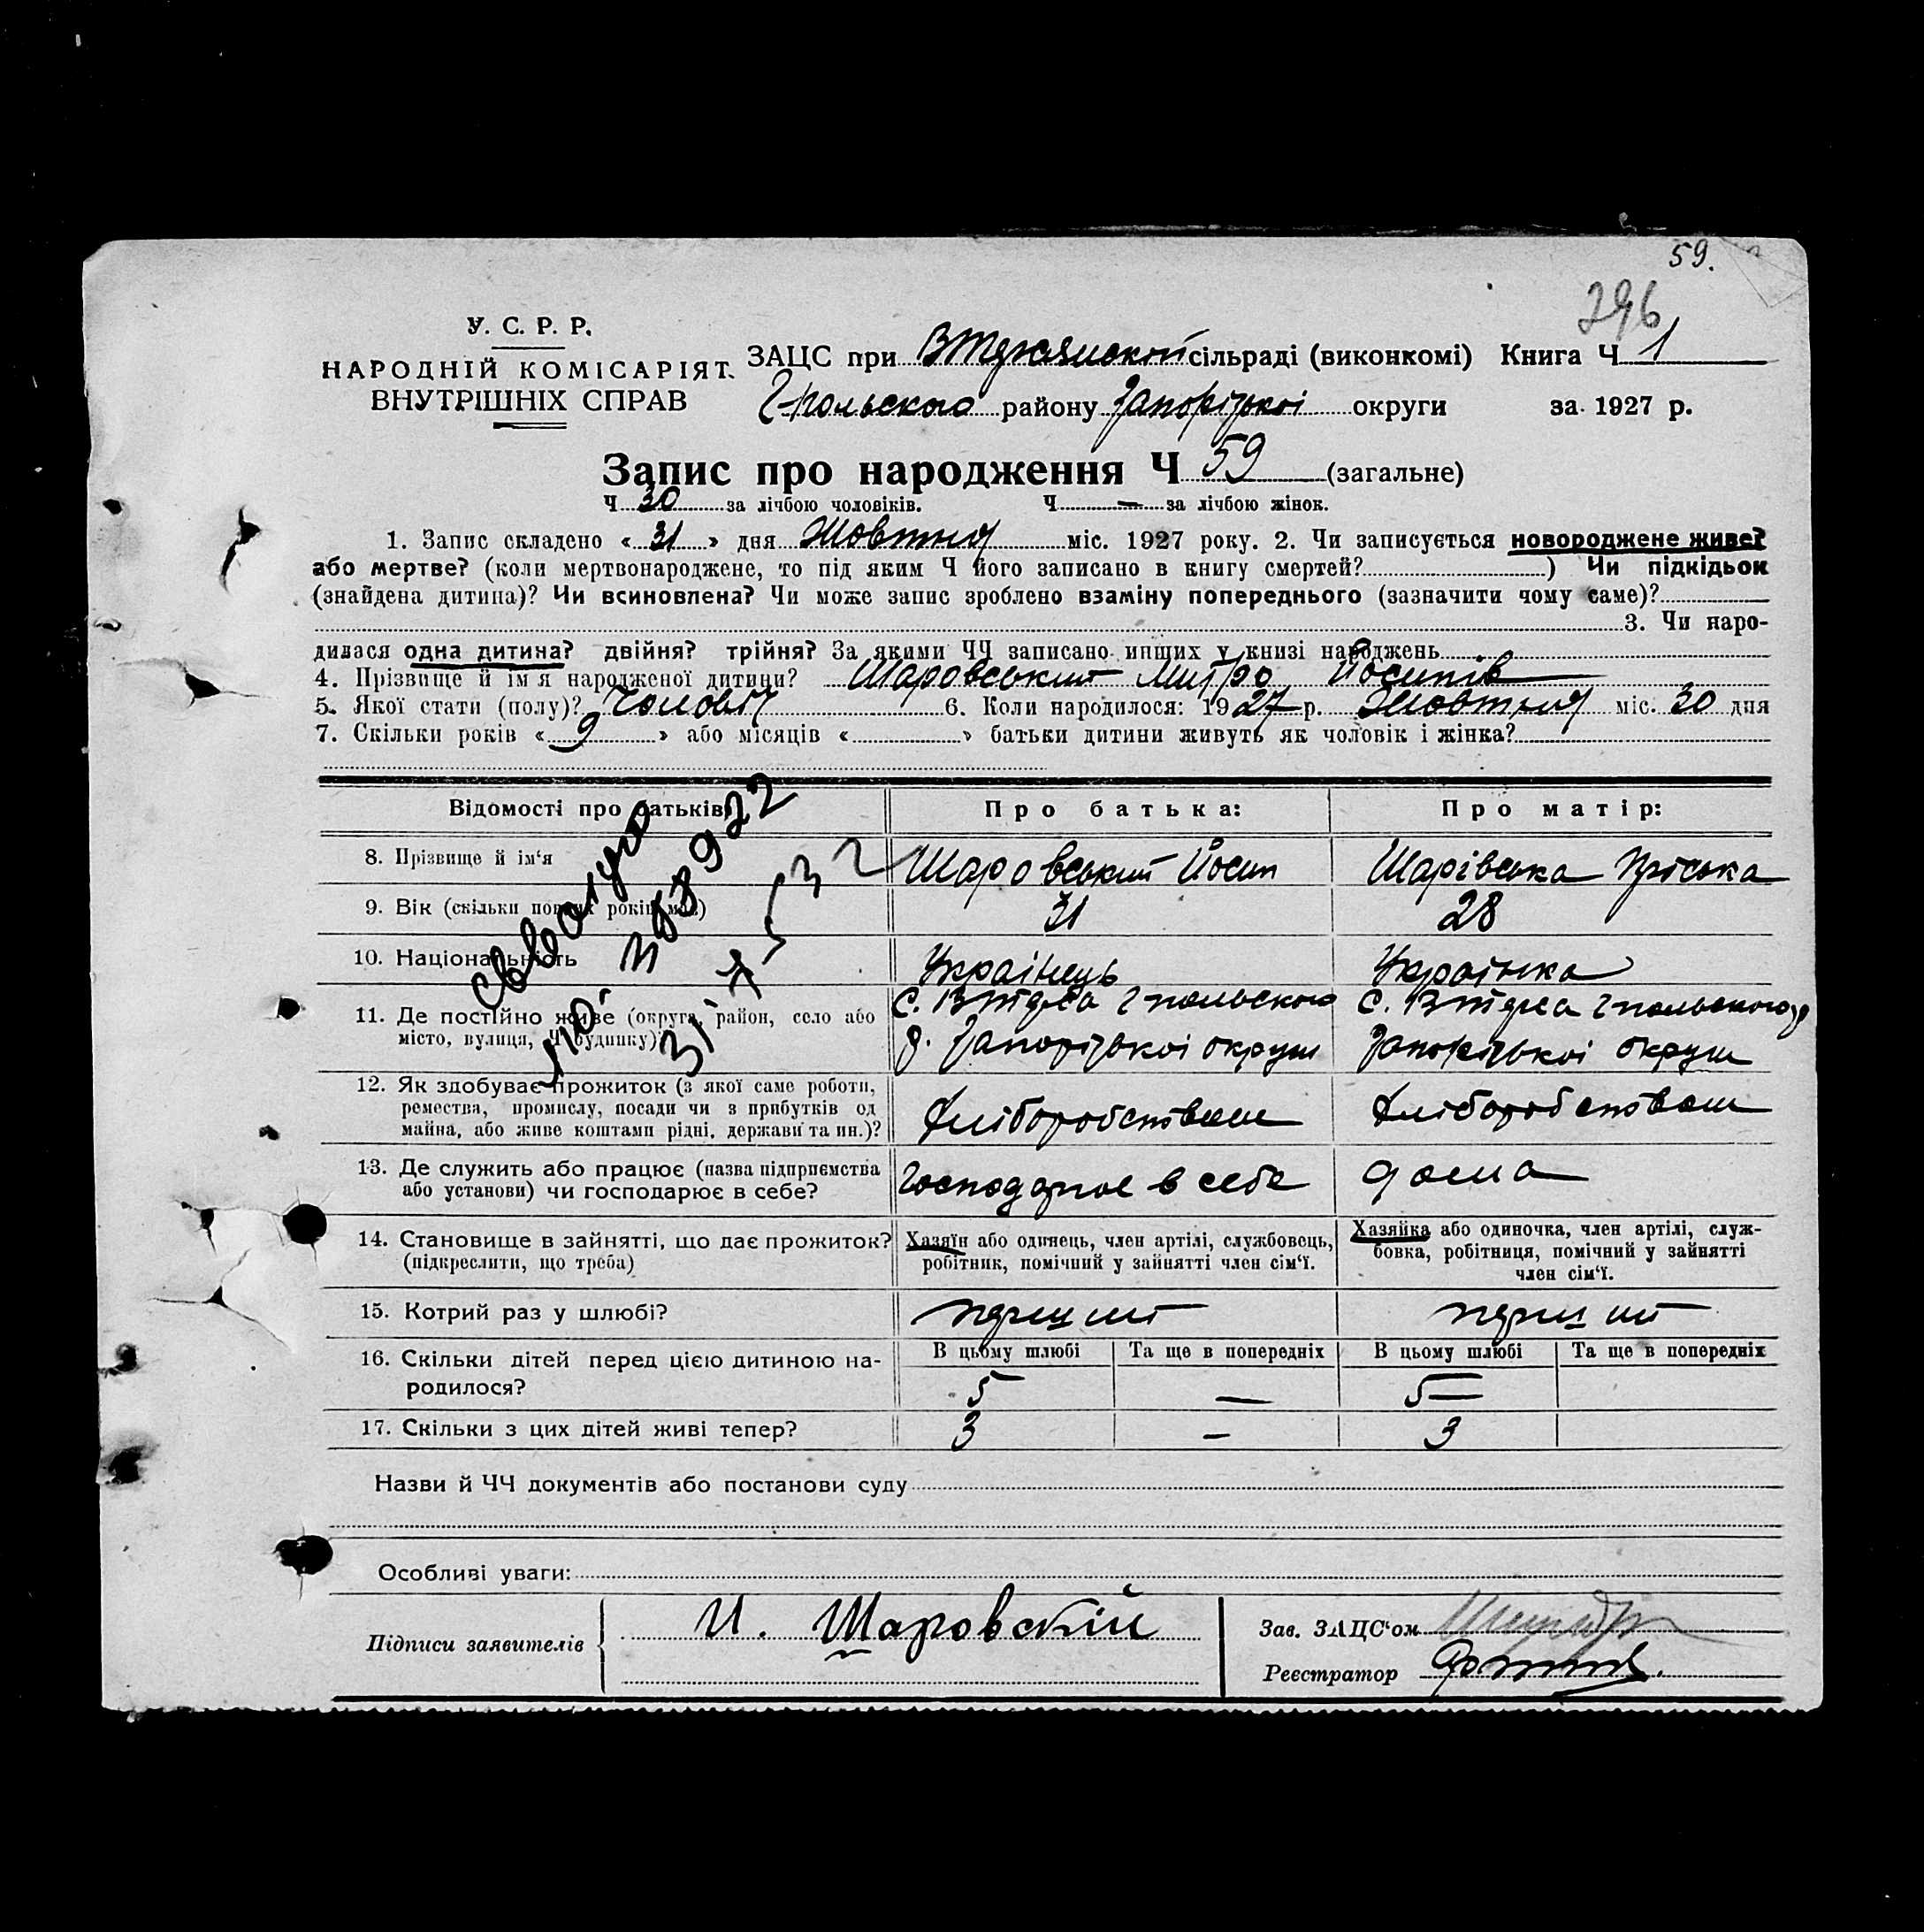 59.
296
У. С. Р. Р.
НАРОДНІЙ КОМІСАРІЯТ
ВНУТРІШНІХ СПРАВ
ЗАЦС при сільраді (виконкомі) Книга Ч 1
Гпольського району Запорізької округи за 1927 р.
Запис про народження Ч 59 (загальне)
Ч 30 за лічбою чоловіків. Ч — за лічбою жінок.
1. Запис складено « 31 » дня Жовтня міс. 1927 року. 2. Чи записується новороджене живе?
або мертве? (коли мертвонароджене, то під яким Ч його записано в книгу смертей? ) Чи підкідьок
(знайдена дитина)? Чи всиновлена? Чи може запис зроблено взаміну попереднього (зазначити чому саме)?
3. Чи наро-
дилася одна дитина? двійня? трійня? За якими ЧЧ записано инших у книзі народжень
4. Прізвище й ім'я народженої дитини? Шаровський Митро Йосипів
5. Якої стати (полу)? Чоловіч 6. Коли народилося: 1927 р. Жовтня міс. 30 дня
7. Скільки років « 9 » або місяців « » батьки дитини живуть як чоловік і жінка?
Відомості про батьків Про батька: Про матір:
8. Прізвище й ім'я Шаровський Йосип Шарівська Пріська
9. Вік (скільки повних років має) 31 28
10. Національність Українець Українка
11. Де постійно живе (округа, район, село або
місто, вулиця, Ч будинку)
с. Гпольского с. Гпольского
р. Запорізької округи Запорізької округи
12. Як здобуває прожиток (з якої саме роботи,
ремества, промислу, посади чи з прибутків од
майна, або живе коштами рідні, держави та ин.)?
Хліборобством Хліборобством
13. Де служить або працює (назва підприємства
або установи) чи господарює в себе?
Господарює в себе дома
14. Становище в зайнятті, що дає прожиток?
(підкреслити, що треба)
Хазяїн або одинець, член артілі, службовець,
робітник, помічний у зайнятті член сім'ї.
Хазяйка або одиночка, член артілі, служ-
бовка, робітниця, помічний у зайнятті
член сім'ї.
15. Котрий раз у шлюбі? перший перший
16. Скільки дітей перед цією дитиною на-
родилося?
В цьому шлюбі Та ще в попередніх В цьому шлюбі Та ще в попередніх
5 — 5
17. Скільки з цих дітей живі тепер? 3 — 3
Назви й ЧЧ документів або постанови суду
Особливі уваги:
Підписи заявителів И. Шаровскій
Зав. ЗАЦС'ом
Реєстратор